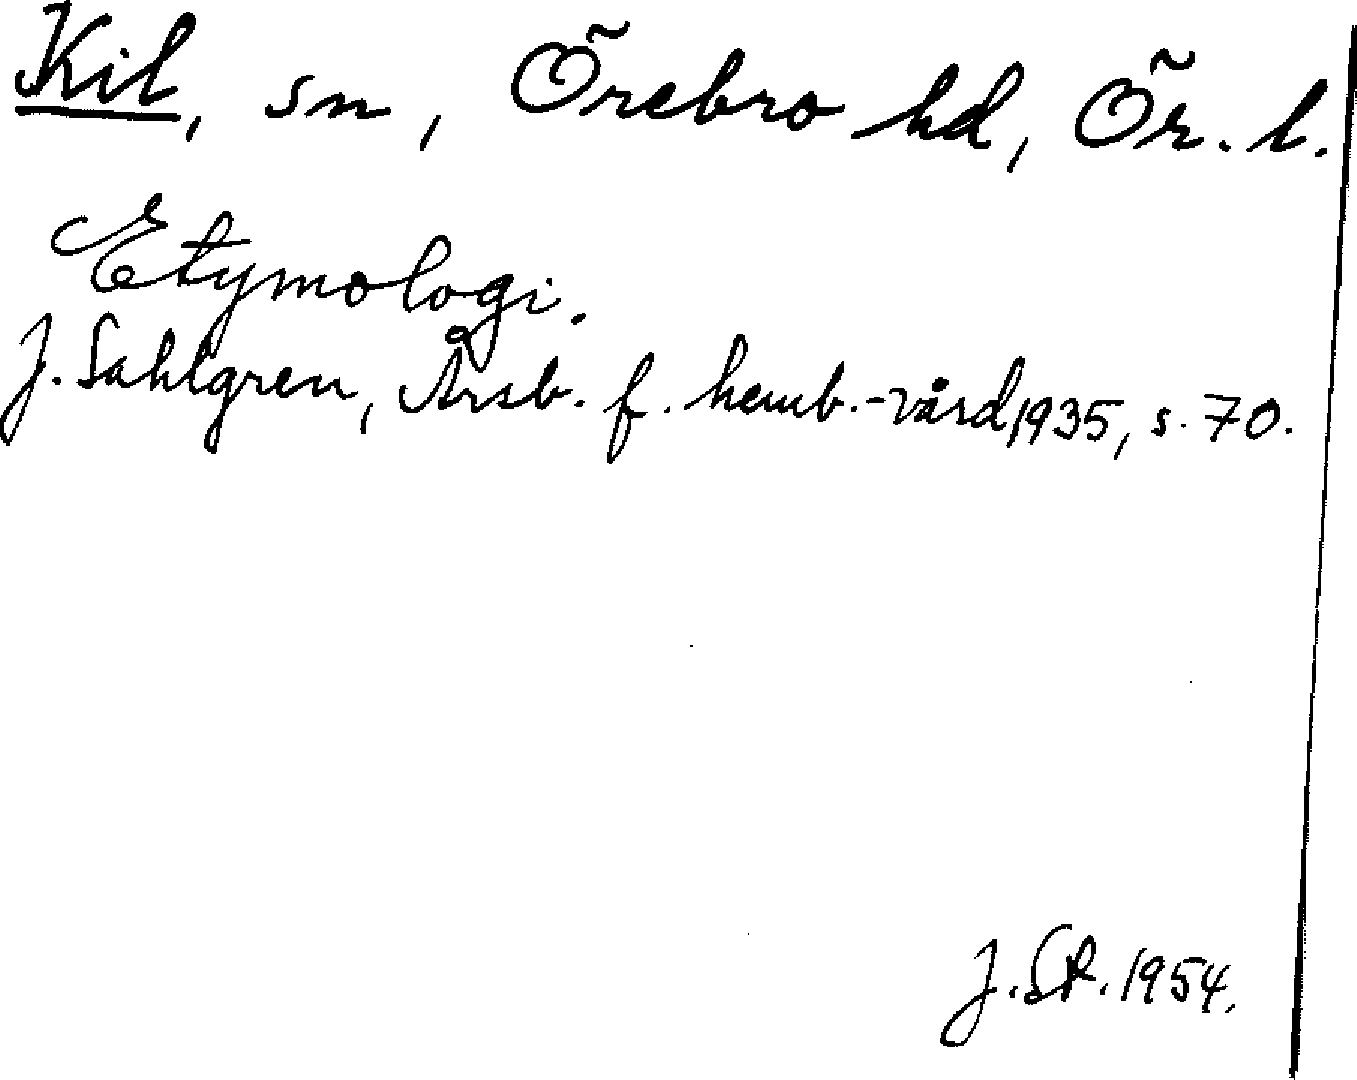 Kil, sn, Örebro hd, Ör. l.
Etymologi.
J. Sahlgren, Årsb. f. hemb.-vård 1935, s. 70.
J. St. 1954.